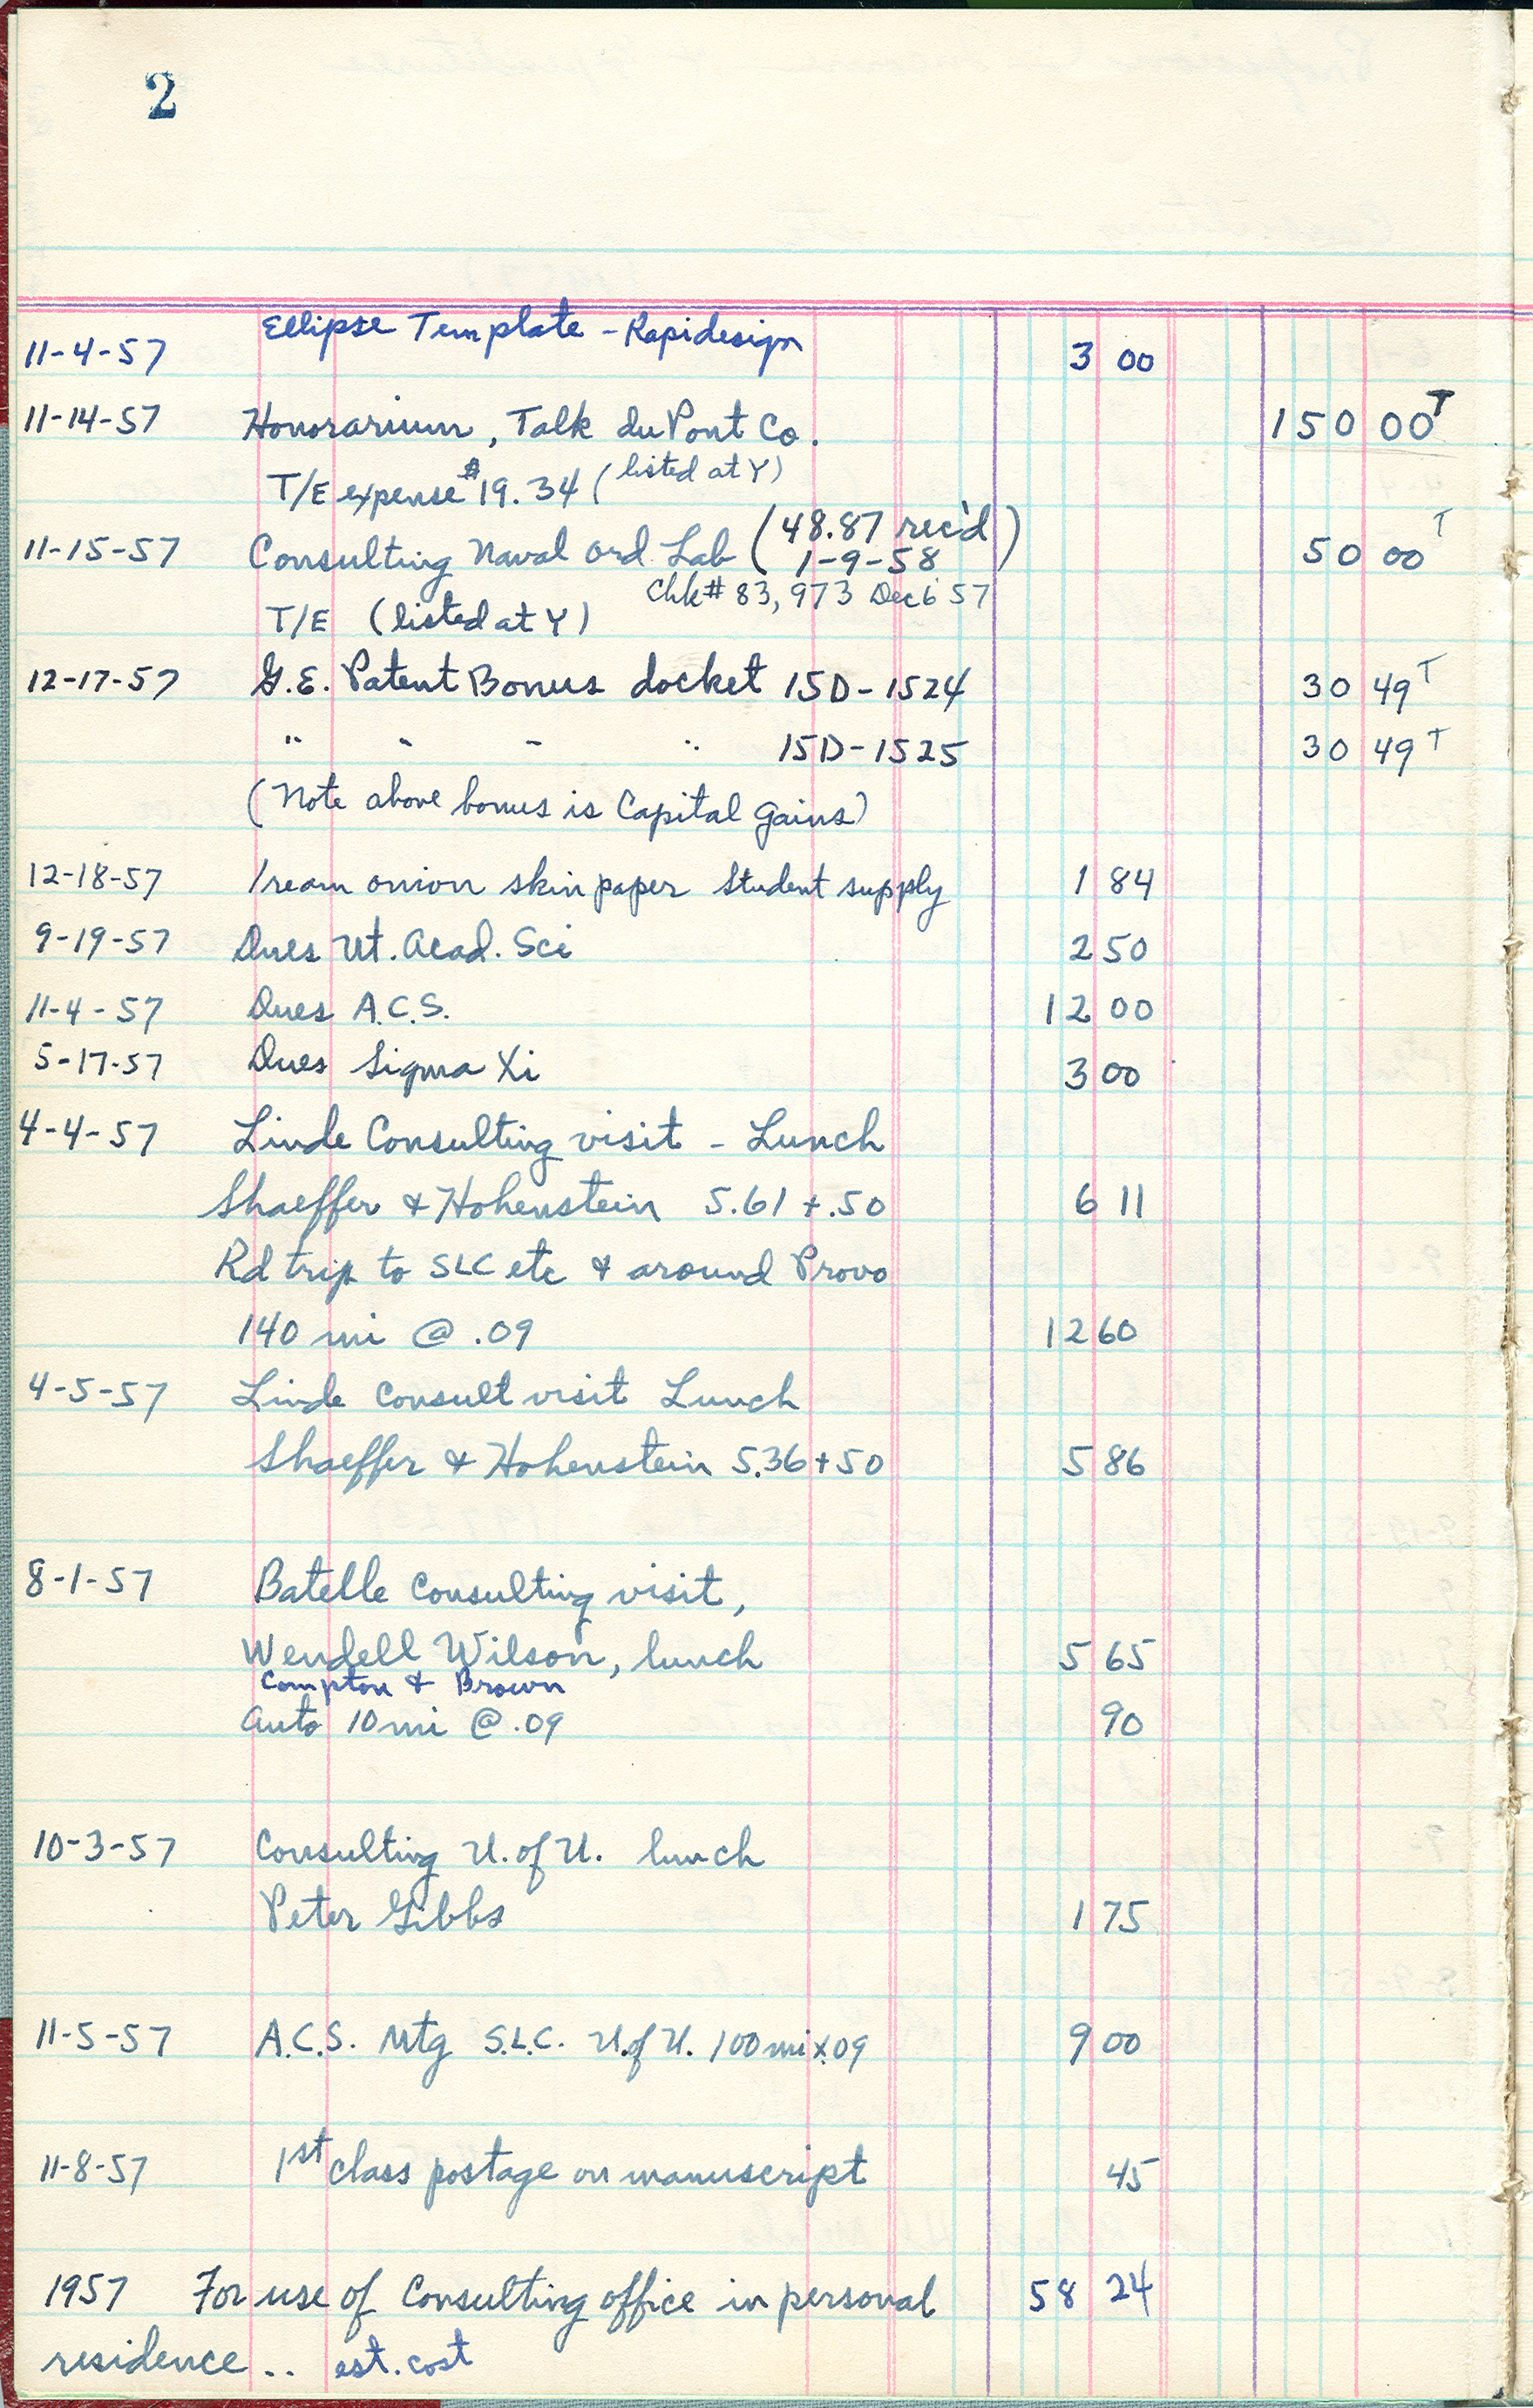 2
Ellipse Template - Rapidesign
11-4-57 3 00
11-14-57 Honorarium, Talk duPont Co. 150 00 T
T/E expense $19.34 (listed at Y)
11-15-57 Consulting Naval Ord Lab (48.87 rec'd 1-9-58) 50 00 T
Chk# 83,973 Dec 6 57
T/E (listed at Y)
12-17-57 G.E. Patent Bonus docket 15D-1524 30 49 T
" " " " 15D-1525 30 49 T
(Note above bonus is Capital Gains)
12-18-57 1 ream onion skin paper Student supply 1 84
9-19-57 Dues Ut. Acad. Sci 2 50
11-4-57 Dues A.C.S. 12 00
5-17-57 Dues Sigma Xi 3 00
4-4-57 Linde Consulting visit - Lunch
Shaeffer & Hohenstein 5.61 + .50 6 11
Rd trip to SLC etc & around Provo
140 mi @ .09 12 60
4-5-57 Linde Consult visit Lunch
Shaeffer & Hohenstein 5.36 + 50 5 86
8-1-57 Batelle Consulting visit,
Wendell Wilson, lunch 5 65
Compton & Brown
Auto 10 mi @ .09 90
10-3-57 Consulting U. of U. lunch
Peter Gibbs 1 75
11-5-57 A.C.S. Mtg S.L.C. U. of U. 100 mi x .09 9 00
11-8-57 1st class postage on manuscript 45
1957 For use of Consulting office in personal 58 24
residence .. est. cost